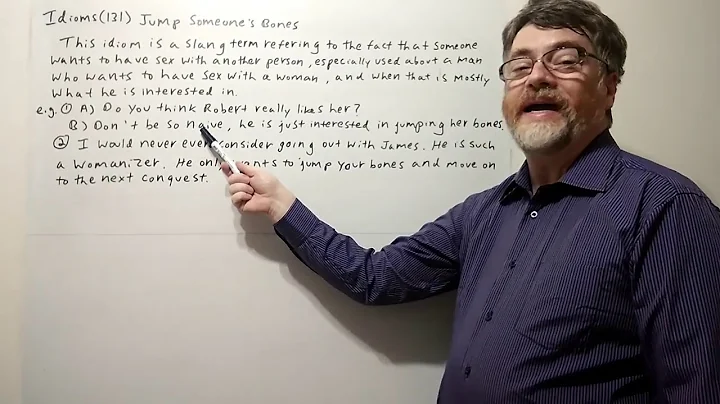 Idioms(131) Jump Someone's Bones
This idiom is a slang term refering to the fact that someone
wants to have sex with another person, especially used about a man
who wants to have sex with a woman, and when that is mostly
what he is interested in.
e.g. ① A) Do you think Robert really likes her?
B) Don't be so naive, he is just interested in jumping her bones.
② I would never ever consider going out with James. He is such
a womanizer. He only wants to jump your bones and move on
to the next conquest.